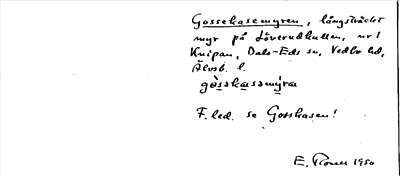 Gossekasemyren, långsträckt
myr på Löverudkullen, nr 1
Knipan, Dals-Eds sn, Vedbo hd,
Älvsb. l.
gòsekasemýra
F. led. se Gosskasen!
E. 1950